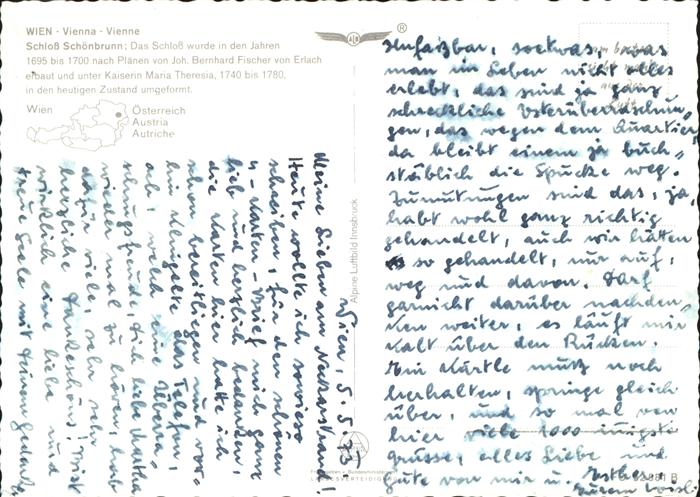 WIEN - Vienna - Vienne
Schloß Schönbrunn; Das Schloß wurde in den Jahren
1695 bis 1700 nach Plänen von Joh. Bernhard Fischer von Erlach
erbaut und unter Kaiserin Maria Theresia, 1740 bis 1780,
in den heutigen Zustand umgeformt.
Wien
Österreich
Austria
Autriche
®
Alpine Luftbild Innsbruck
Wien, 5.5.
Meine Lieben am Neckarstrand!
Heute wollte ich sowieso
schreiben, für den schönen
u-karten-Brief mich ganz
lieb und herzlich bedanken,
die Karten hier hatte ich
schon bereitliegen und vor-
hin klingelte das Telefon,
ach, welch eine Überra-
schungsfreude, Dich liebe Martha
wieder mal zu hören, hab
dazu viele, sehr sehr
herzliche Dankeschöns! Bist
wirklich eine liebe und
treue Seele mit Deinem Gedenken
Unfaßbar, soetwas, was
man im Leben nicht alles
erlebt, das sind ja ganz
schreckliche Osterüberraschun-
gen, das wegen dem Quartier,
da bleibt einem ja buch-
stäblich die Spucke weg.
Zumutungen sind das, ja
habt wohl ganz richtig
gehandelt, auch wir hätten
so gehandelt, nur auf,
weg und davon. Darf
garnicht darüber nachden-
ken weiter, es läuft mir
kalt über den Rücken.
Ein Kärtle muß noch
herhalten, springe gleich
über, und so mal von
hier viele 1000 innigste
Grüsse, alles Liebe und
Gute von mir u.